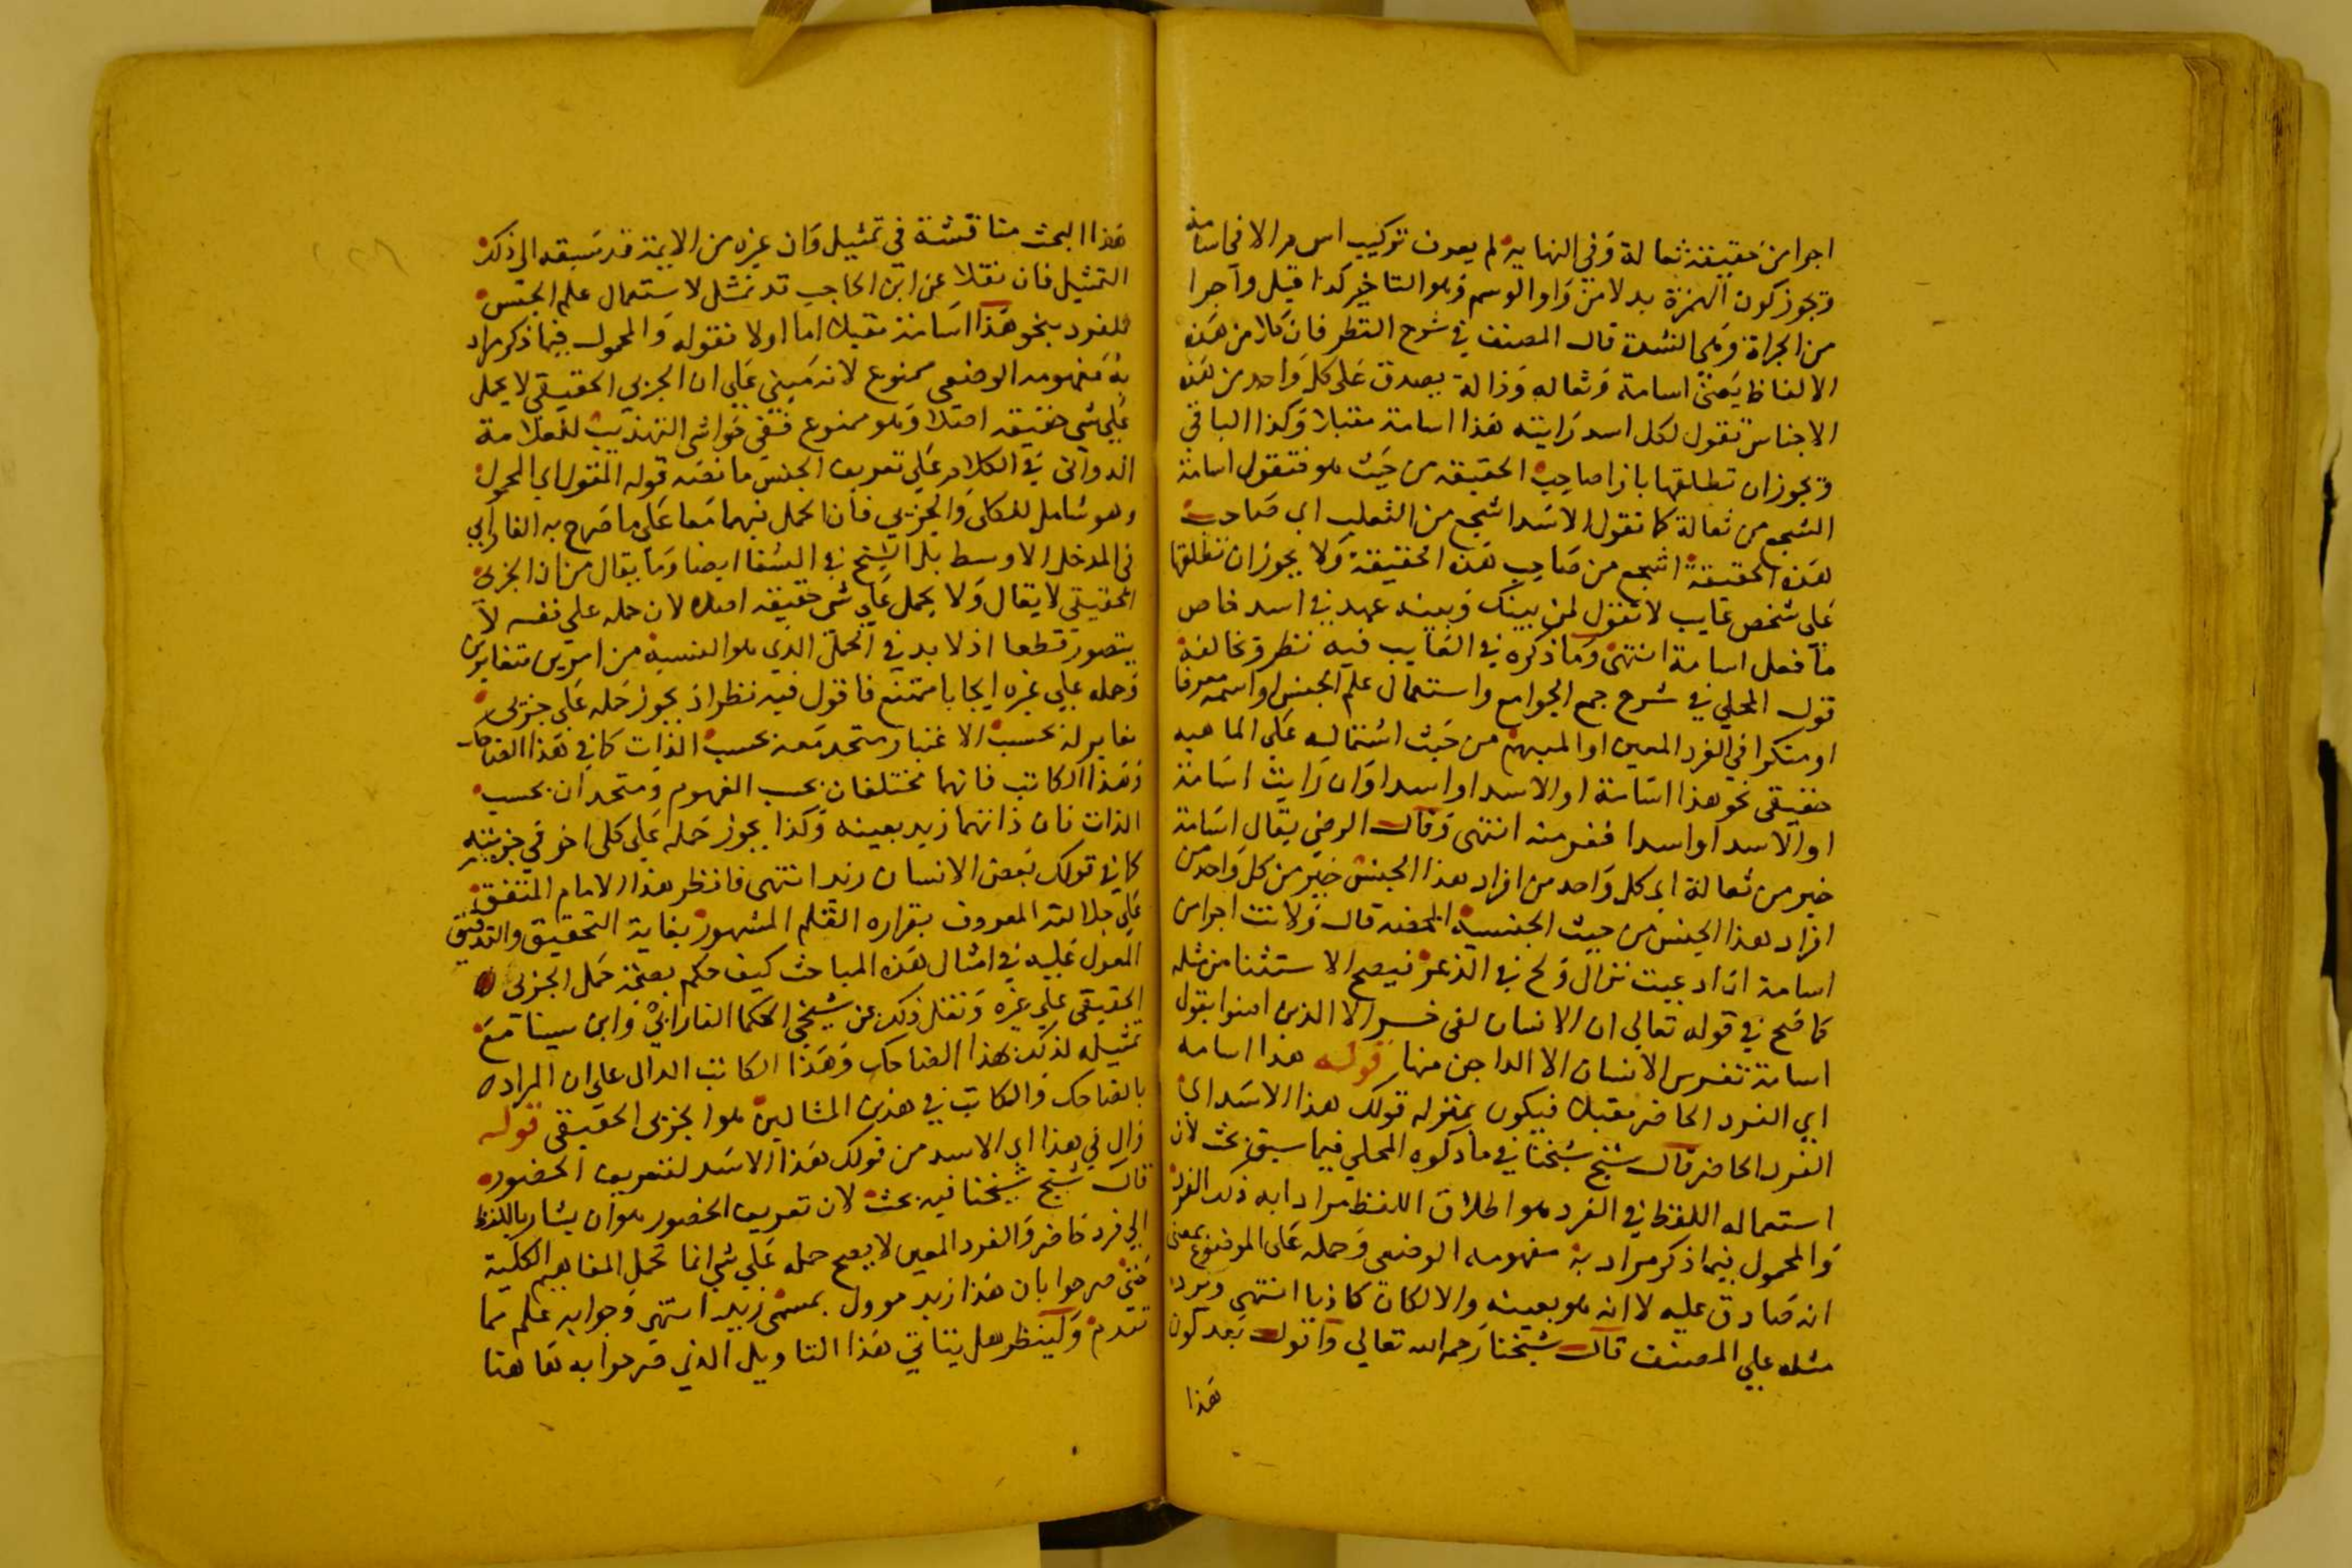 اجرا من حقيقة ثعالة وفي النهاية لم يعرف تركيب اس م الا في اسامة
ويجوز كون الهمزة بدلا من واو الوسم وهو التاخير كذا قيل واجرا
من الجراة وهي الشدة قال المصنف في شرح القطر فان كلا من هذه
الالفاظ يعني اسامة وثعاله وذالة يصدق على كل واحد من هذه
الاجناس تقول لكل اسد رايته هذا اسامة مقبلا وكذا الباقي
ويجوز ان تطلقها بازا صاحب الحقيقه من حيث هو فتقول اسامة
اشجع من ثعالة كما تقول الاسد اشجع من الثعلب اي صاحب
هذه الحقيقة اشجع من صاحب هذه الحقيقة ولا يجوز ان تطلقها
على شخص غايب لا تقول لمن بينك وبينه عهد في اسد خاص
ما فعل اسامة انتهى وما ذكره في الغايب فيه نظر ومخالفة
قول المحلي في شرح جمع الجوامع واستعمال علم الجنس او اسمه معرفا
او منكرا في الفرد المعين او المبهم من حيث اشتماله على الماهيه
حقيقي نحو هذا اسامة او الاسد او اسد او ان رايت اسامة
او الاسد او اسدا ففر منه انتهى وقال الرضي يقال اسامة
خير من ثعالة اي كل واحد من افراد هذا الجنس خير من كل واحد من
افراد هذا الجنس من حيث الجنسية المحضه قال ولانت اجرا من
اسامة اذ ادعيت نزال ولج في الذعر فيصح الاستثنا من مثله
كما صح في قوله تعالى ان الانسان لفي خسر الا الذين امنوا يقول
اسامة تفرس الانسان الا الداجن منها قوله هذا اسامه
اي الفرد الحاضر مقبلا فيكون بمنزله قولك هذا الاسد اي
الفرد الحاضر قال شيخ شيخنا في ما ذكره المحلي فيما سبق بحث لان
استعماله اللفظ في الفرد هو اطلاق اللفظ مرادا به ذلك الفرد
والمحمول فيما ذكر مراد به مفهومه الوضعي وحمله على الموضوع بمعنى
انه صادق عليه لا انه هو بعينه والا لكان كاذبا انتهى ويرد
مثله على المصنف قال شيخنا رحمه الله تعالى واقول بعد كون
هذا
هذا البحث مناقشة في تمثيل وان غيره من الايمة قد سبقه الى ذكر
التمثيل فان نقلا عن ابن الحاجب قد تمثل لاستعمال علم الجنس
للفرد بنحو هذا اسامة مقبلا اما اولا فقوله والمحمول فيما ذكر مراد
به مفهومه الوضعي ممنوع لانه مبني على ان الجزيي الحقيقي لا يحمل
على شي حقيقه اصلا وهو ممنوع ففي حواشي التهذيب للعلامة
الدواني في الكلام على تعريف الجنس ما نصه قوله المقول اي المحمول
وهو شامل للكلي والجزيي فان الحمل فيهما معا على ما صرح به الفارابي
في المدخل الاوسط بل الشيخ في الشفا ايضا وما يقال من ان الجزي
الحقيقي لا يقال ولا يحمل على شي حقيقه اصلا لان حمله على نفسه لا
يتصور قطعا اذ لا بد في الحمل الذي هو النسبة من امرين متغايرين
وحمله على غيره ايجابا ممتنع فاقول فيه نظر اذ يجوز حمله على جزيي
مغاير له بحسب الاعتبار متحد معه بحسب الذات كما في هذا الضاحك
وهذا الكاتب فانهما مختلفان بحسب المفهوم ومتحدان بحسب
الذات فان ذاتهما زيد بعينه وكذا يجوز حمله على كلي اخر في جزييته
كما في قولك بعض الانسان زيد انتهى فانظر هذا الامام المتفق
على جلالته المعروف بقراره القلم المشهور بغاية التحقيق والتدقيق
المعول عليه في امثال هذه المباحث كيف حكم بصحة حمل الجزيي
الحقيقي على غيره ونقل ذلك عن شيخي الحكما الفارابي وابن سينا مع
تمثيله لذلك بهذا الضاحك وهذا الكاتب الدال على ان المراد
بالضاحك والكاتب في هذين المثالين هو الجزيي الحقيقي قوله
وال في هذا اي الاسد من قولك هذا الاسد لتعريف الحضور
قال شيخ شيخنا فيه بحث لان تعريف الحضور هو ان يشار باللفظ
الى فرد حاضر والفرد المعين لا يصح حمله على شي انما تحمل المفاهيم الكلية
حتى صرحوا بان هذا زيد موول بمسمى زيد انتهى وجوابه علم مما
تقدم ولينظر هل يتاتي هذا التاويل الذي صرحوا به ها هنا